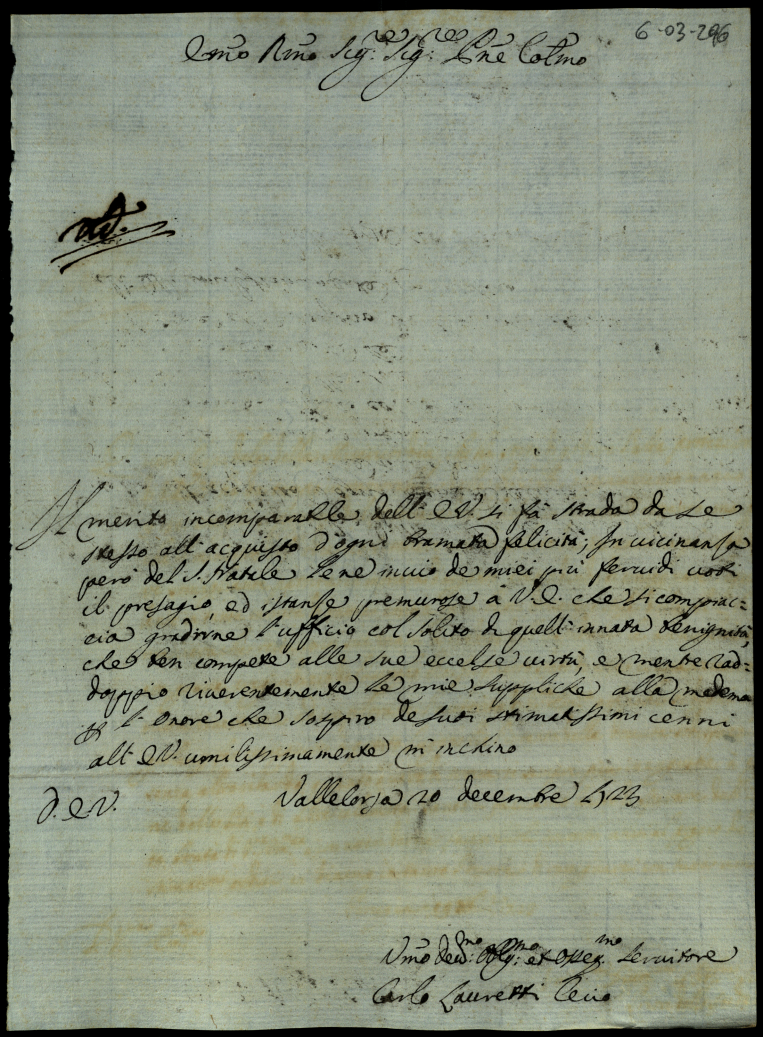 6-03-296
Em̃o Rm̃o Sig.re Sig.re Pñe Colm̃o
Il merito incomparabile dell'E.V. si fà strada da se
stesso all'acquisto d'ogni bramata felicità; In vicinanza
però del S. Natale le ne invio de miei più fervidi voti
il presagio, ed istanze premurose à V.E. che si compiac:
cia gradirne l'ufficio col solito di quell'innata benignità,
che ben compete alle sue eccelse virtù, e mentre rad:
doppio riverentemente le mie suppliche alla medema
l'onore che sospiro de suoi stimatissimi cenni
all'E.V. umilissimamente m'inchino
D. E.V.
Vallecorsa 20 decembre 1723
Vm̃o Dev.mo Oblg.mo et Osseq.mo servitore
Carlo Lauretti